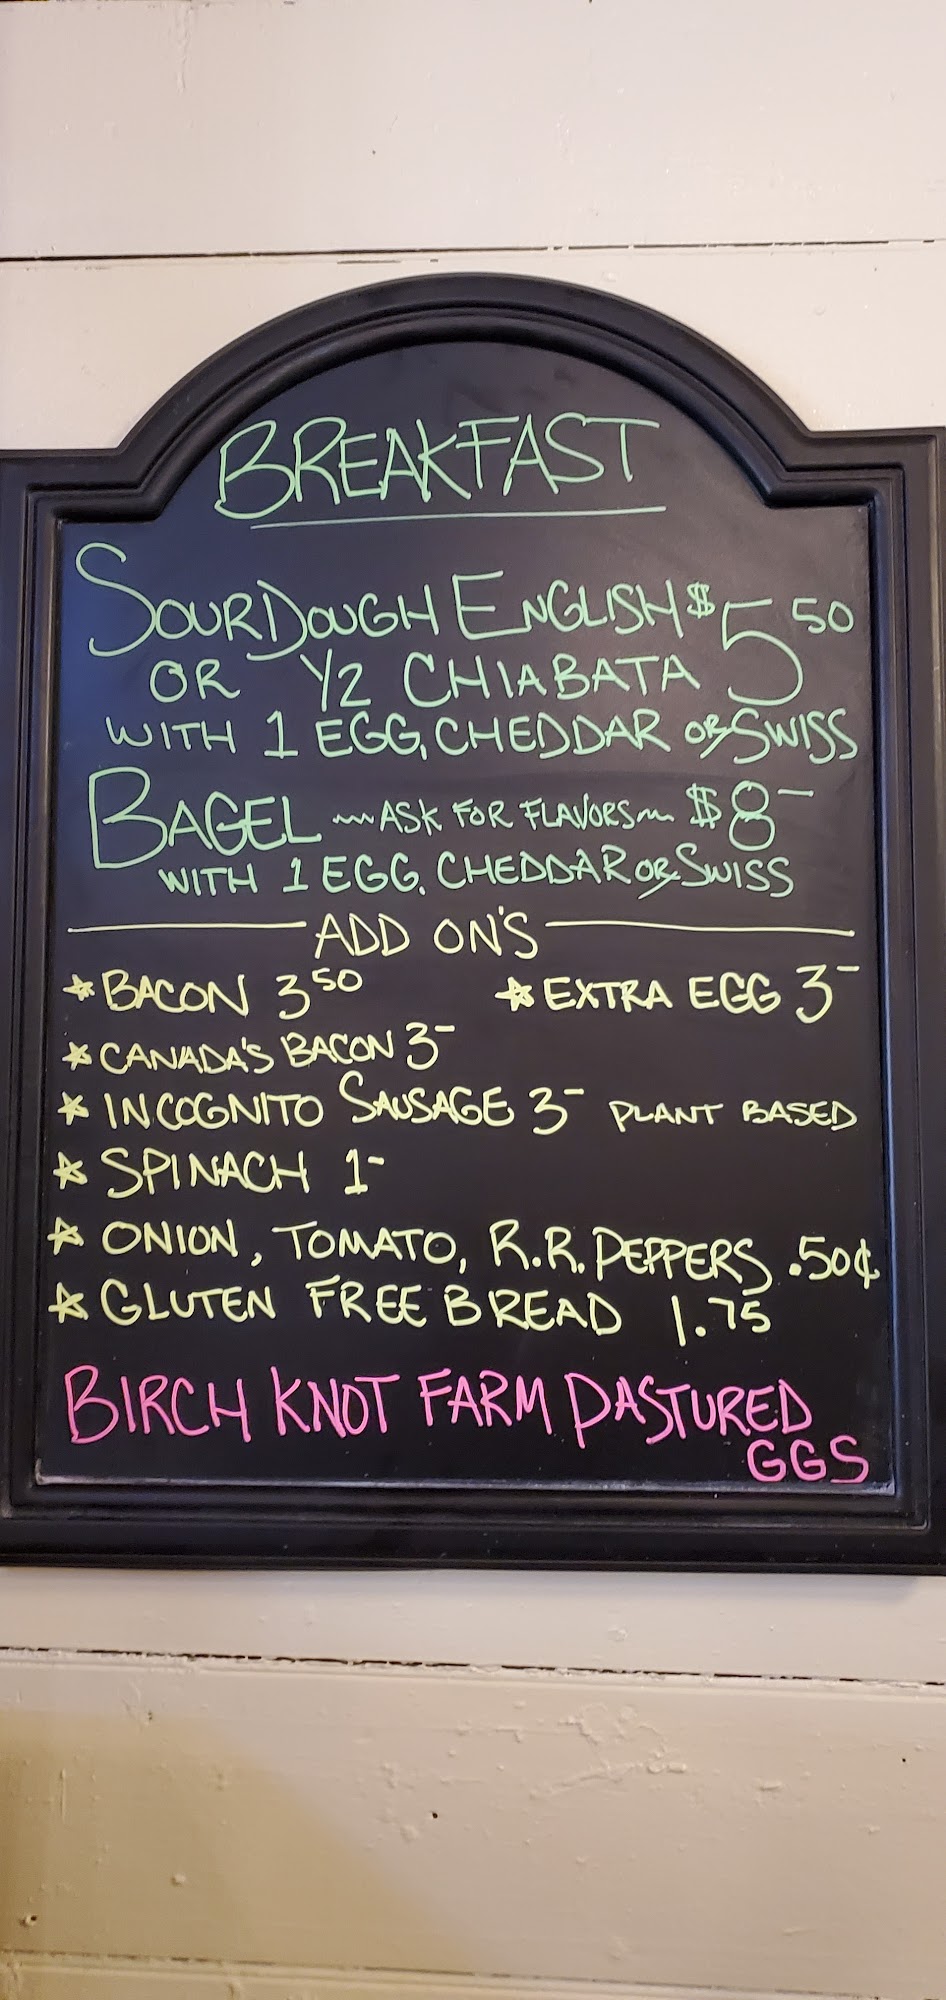 BREAKFAST
SOURDOUGH ENGLISH $5.50
OR 1/2 CHIABATA
WITH 1 EGG, CHEDDAR OR SWISS
BAGEL ~ASK FOR FLAVORS~ $8-
WITH 1 EGG, CHEDDAR OR SWISS
ADD ON'S
* BACON 3.50 * EXTRA EGG 3-
* CANADA'S BACON 3-
* INCOGNITO SAUSAGE 3- PLANT BASED
* SPINACH 1-
* ONION, TOMATO, R.R. PEPPERS .50¢
* GLUTEN FREE BREAD 1.75
BIRCH KNOT FARM PASTURED
GGS